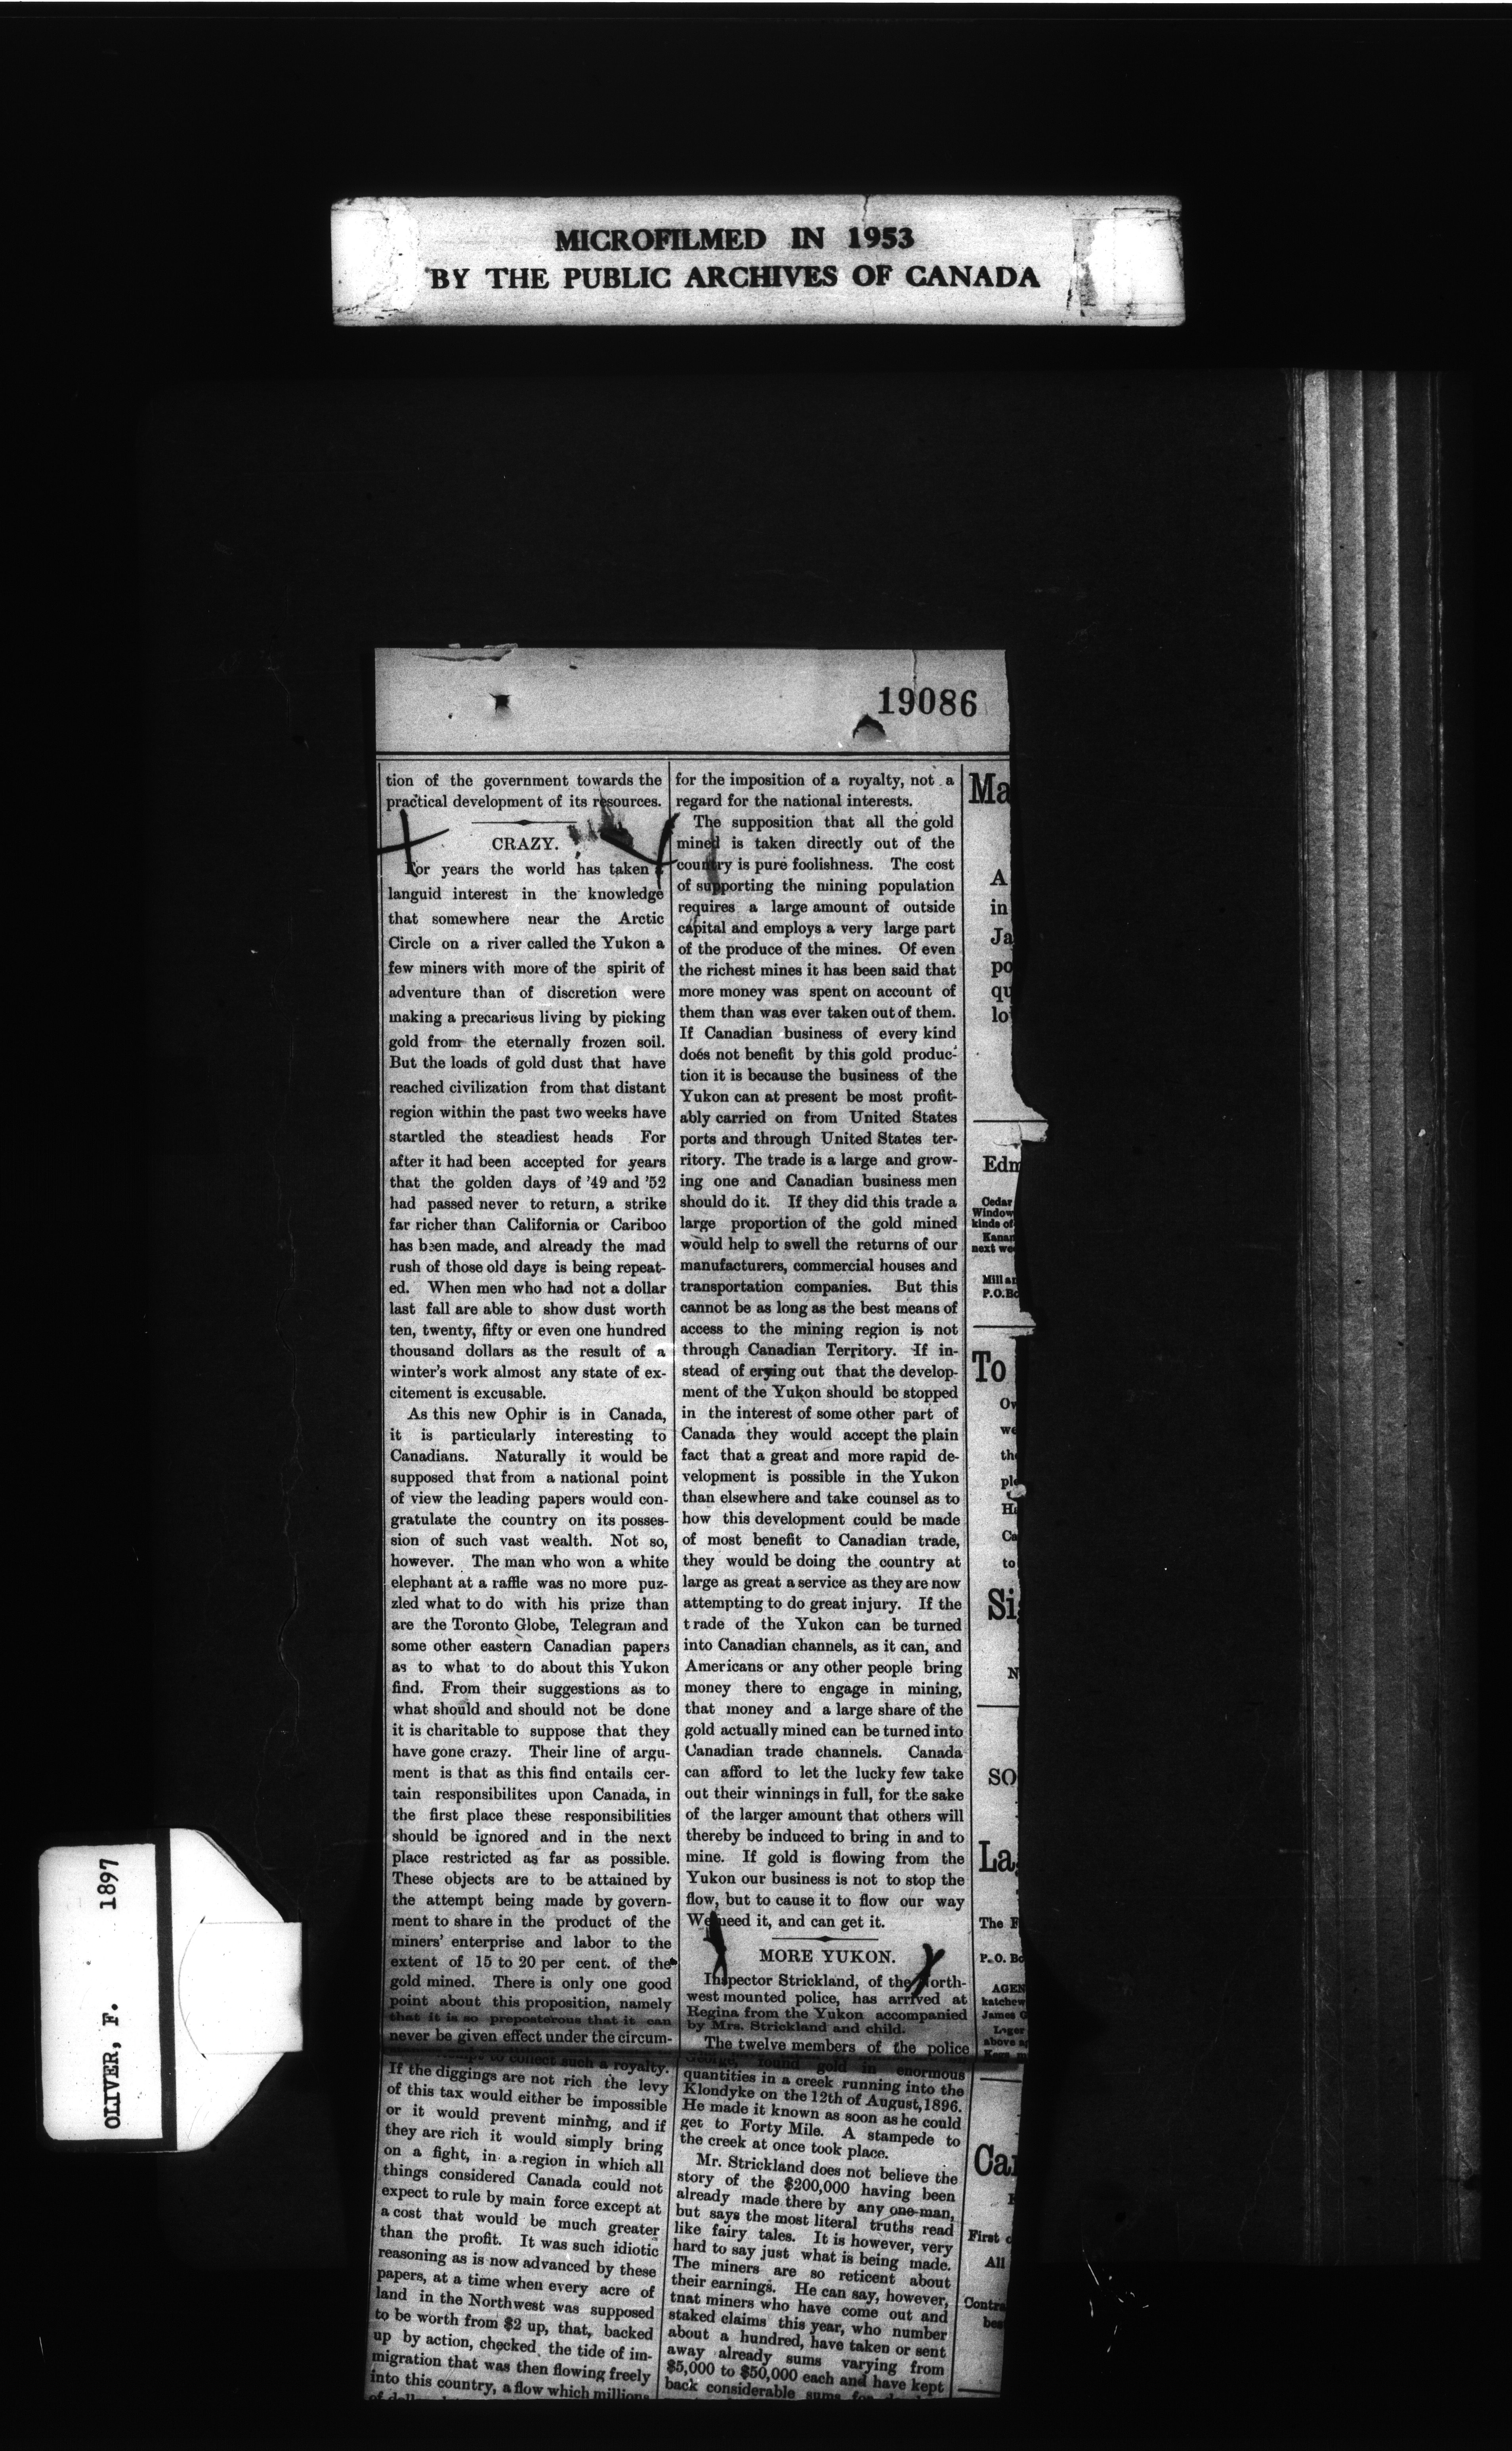 MICROFILMED IN 1953
BY THE PUBLIC ARCHIVES OF CANADA
19086
tion of the government towards the
practical development of its resources.
CRAZY.
For years the world has taken a
languid interest in the knowledge
that somewhere near the Arctic
Circle on a river called the Yukon a
few miners with more of the spirit of
adventure than of discretion were
making a precarious living by picking
gold from the eternally frozen soil.
But the loads of gold dust that have
reached civilization from that distant
region within the past two weeks have
startled the steadiest heads For
after it had been accepted for years
that the golden days of '49 and '52
had passed never to return, a strike
far richer than California or Cariboo
has been made, and already the mad
rush of those old days is being repeat-
ed. When men who had not a dollar
last fall are able to show dust worth
ten, twenty, fifty or even one hundred
thousand dollars as the result of a
winter's work almost any state of ex-
citement is excusable.
As this new Ophir is in Canada,
it is particularly interesting to
Canadians. Naturally it would be
supposed that from a national point
of view the leading papers would con-
gratulate the country on its posses-
sion of such vast wealth. Not so,
however. The man who won a white
elephant at a raffle was no more puz-
zled what to do with his prize than
are the Toronto Globe, Telegram and
some other eastern Canadian papers
as to what to do about this Yukon
find. From their suggestions as to
what should and should not be done
it is charitable to suppose that they
have gone crazy. Their line of argu-
ment is that as this find entails cer-
tain responsibilites upon Canada, in
the first place these responsibilities
should be ignored and in the next
place restricted as far as possible.
These objects are to be attained by
the attempt being made by govern-
ment to share in the product of the
miners' enterprise and labor to the
extent of 15 to 20 per cent. of the
gold mined. There is only one good
point about this proposition, namely
that it is so preposterous that it can
never be given effect under the circum-
to collect such a royalty.
If the diggings are not rich the levy
of this tax would either be impossible
or it would prevent mining, and if
they are rich it would simply bring
on a fight, in a region in which all
things considered Canada could not
expect to rule by main force except at
a cost that would be much greater
than the profit. It was such idiotic
reasoning as is now advanced by these
papers, at a time when every acre of
land in the Northwest was supposed
to be worth from $2 up, that, backed
up by action, checked the tide of im-
migration that was then flowing freely
into this country, a flow which millions
for the imposition of a royalty, not a
regard for the national interests.
The supposition that all the gold
mined is taken directly out of the
country is pure foolishness. The cost
of supporting the mining population
requires a large amount of outside
capital and employs a very large part
of the produce of the mines. Of even
the richest mines it has been said that
more money was spent on account of
them than was ever taken out of them.
If Canadian business of every kind
does not benefit by this gold produc-
tion it is because the business of the
Yukon can at present be most profit-
ably carried on from United States
ports and through United States ter-
ritory. The trade is a large and grow-
ing one and Canadian business men
should do it. If they did this trade a
large proportion of the gold mined
would help to swell the returns of our
manufacturers, commercial houses and
transportation companies. But this
cannot be as long as the best means of
access to the mining region is not
through Canadian Territory. If in-
stead of crying out that the develop-
ment of the Yukon should be stopped
in the interest of some other part of
Canada they would accept the plain
fact that a great and more rapid de-
velopment is possible in the Yukon
than elsewhere and take counsel as to
how this development could be made
of most benefit to Canadian trade,
they would be doing the country at
large as great a service as they are now
attempting to do great injury. If the
trade of the Yukon can be turned
into Canadian channels, as it can, and
Americans or any other people bring
money there to engage in mining,
that money and a large share of the
gold actually mined can be turned into
Canadian trade channels. Canada
can afford to let the lucky few take
out their winnings in full, for the sake
of the larger amount that others will
thereby be induced to bring in and to
mine. If gold is flowing from the
Yukon our business is not to stop the
flow, but to cause it to flow our way
We need it, and can get it.
MORE YUKON.
Inspector Strickland, of the North-
west mounted police, has arrived at
Regina from the Yukon accompanied
by Mrs. Strickland and child.
The twelve members of the police
George, found gold in enormous
quantities in a creek running into the
Klondyke on the 12th of August, 1896.
He made it known as soon as he could
get to Forty Mile. A stampede to
the creek at once took place.
Mr. Strickland does not believe the
story of the $200,000 having been
already made there by any one man,
but says the most literal truths read
like fairy tales. It is however, very
hard to say just what is being made.
The miners are so reticent about
their earnings. He can say, however,
tnat miners who have come out and
staked claims this year, who number
about a hundred, have taken or sent
away already sums varying from
$5,000 to $50,000 each and have kept
back considerable sums for
Ma
A
in
Ja
po
qu
lo
Edm
Cedar
Window
kinds of
Kanan
next we
Mill an
P.O.Bo
To
Ow
we
the
ple
Ha
Ca
to
Si
N
SO
La
The F
P.O. Bo
AGEN
katchew
James G
Loger
above a
Car
First c
All
Contra
bes
OLIVER, F. 1897